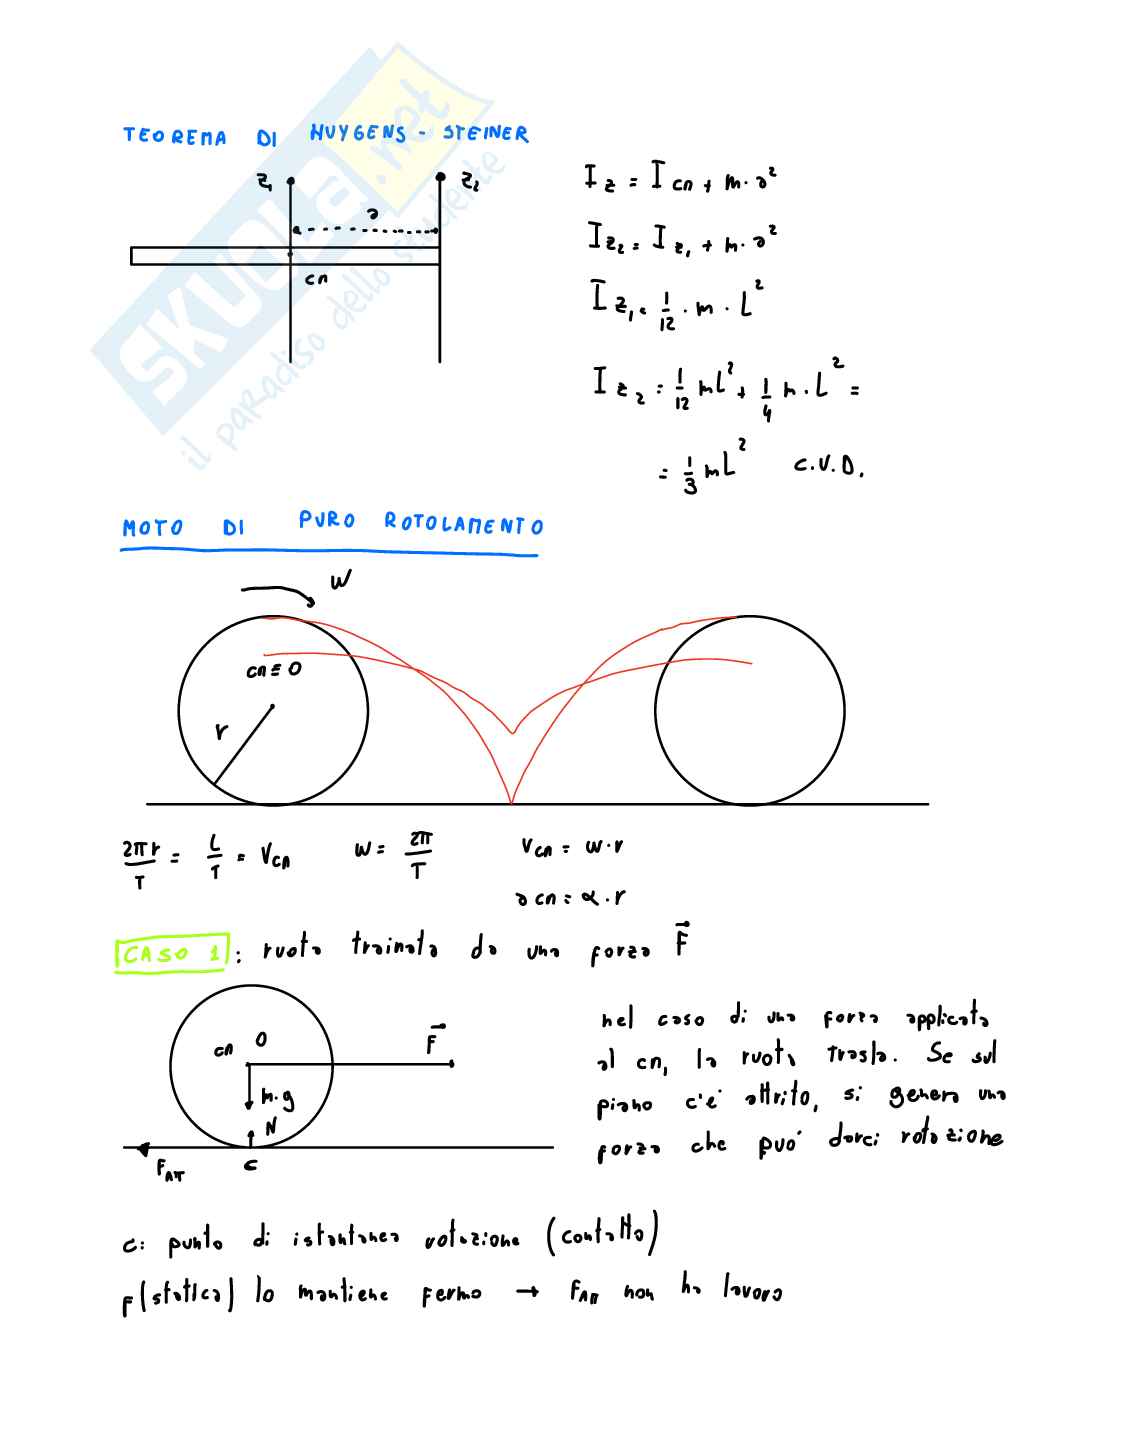 SKUOLA.net
il paradiso dello studente
TEOREMA DI HUYGENS - STEINER
z₁
z₂
a
cm
I z = I cm + m · a²
I z₂ = I z₁ + m · a²
I z₁ = 1/12 · m · L²
I z₂ = 1/12 mL² + 1/4 m · L² =
= 1/3 mL² C.V.D.
MOTO DI PURO ROTOLAMENTO
w
cm ≡ O
r
2πr/T = L/T = Vcm w = 2π/T Vcm = w · r
acm = α · r
CASO 1 : ruota trainata da una forza F⃗
cm O
F⃗
m·g
N
FATT
C
nel caso di una forza applicata
al cm, la ruota trasla. Se sul
piano c'è attrito, si genera una
forza che puo' darci rotazione
C: punto di istantanea rotazione (contatto)
F(statica) lo mantiene fermo → FATT non ha lavoro